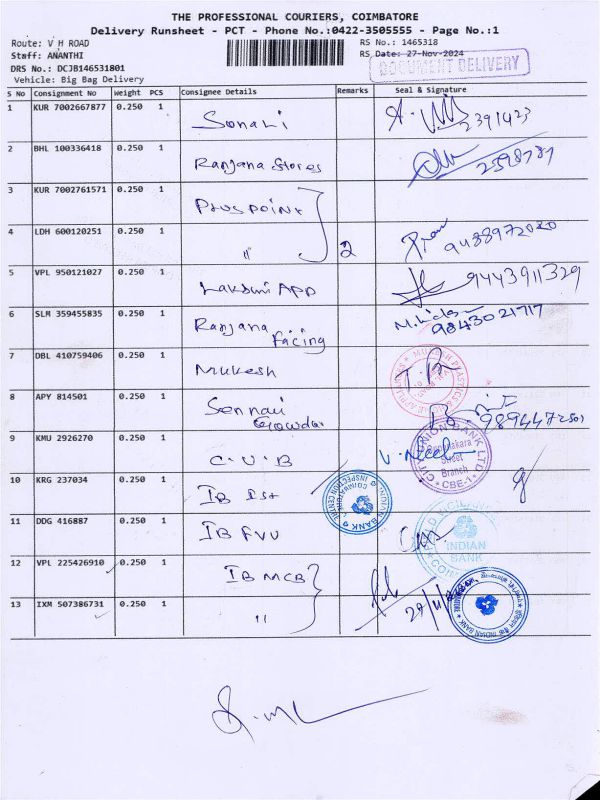 THE PROFESSIONAL COURIERS, COIMBATORE
Delivery Runsheet - PCT - Phone No.:0422-3505555 - Page No.:1
Route: V H ROAD
RS No.: 1465318
Staff: ANANTHI
RS Date: 27-Nov-2024
DRS No.: DCJB146531801
DOCUMENT DELIVERY
Vehicle: Big Bag Delivery
S No Consignment No Weight PCS Consignee Details Remarks Seal & Signature
1 KUR 7002667877 0.250 1 Sonali 2391423
2 BHL 100336418 0.250 1 Ranjana Stores 2398787
3 KUR 7002761571 0.250 1 Plus point
4 LDH 600120251 0.250 1 " 2 9488972020
5 VPL 950121027 0.250 1 Lakshmi APP 9443911329
6 SLM 359455835 0.250 1 Ranjana Facing 9843021717
7 DBL 410759406 0.250 1 Mukesh
8 APY 814501 0.250 1 Sennai Gowdar
9 KMU 2926270 0.250 1 C.U.B
CITY UNION BANK LTD
Street
Branch
CBE-1
10 KRG 237034 0.250 1 IB Ist
INDIAN BANK
INSPECTION CENTRE
11 DDG 416887 0.250 1 IB FVU
INDIAN
BANK
12 VPL 225426910 0.250 1 IB MCB
13 IXM 507386731 0.250 1 "
INDIAN BANK